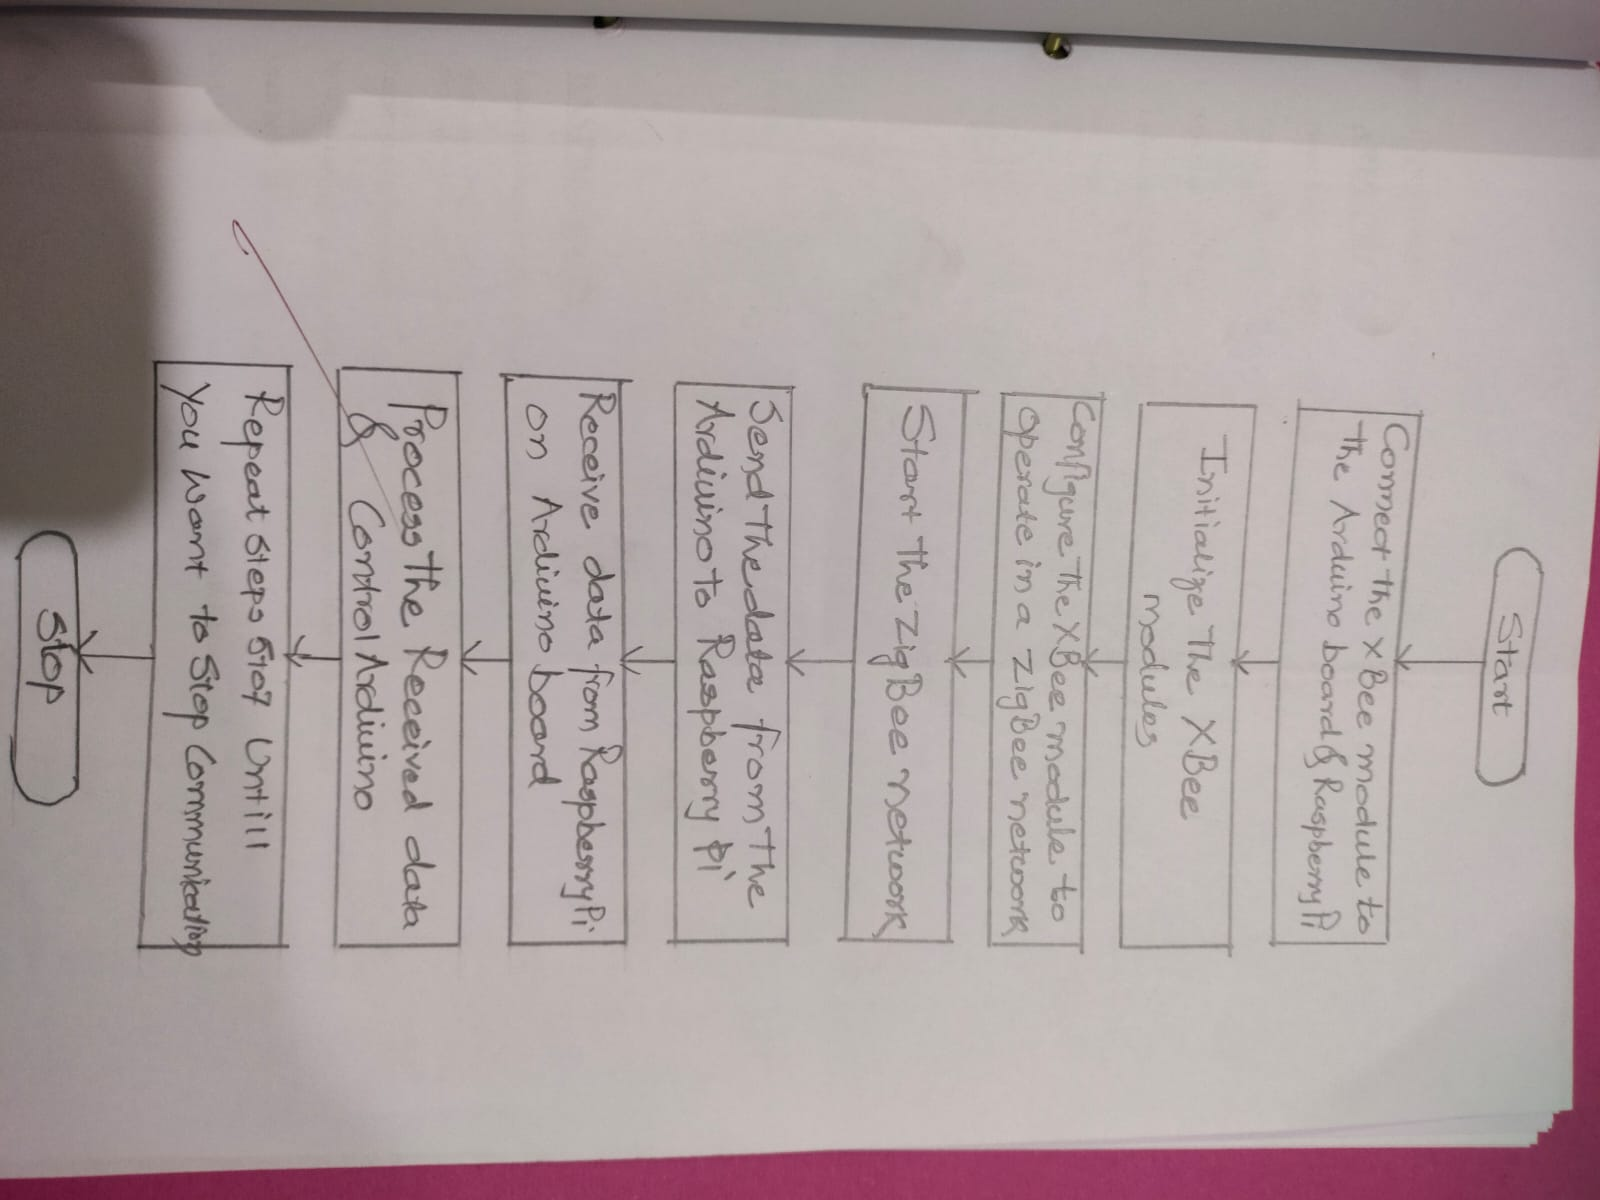 Start
Connect the XBee module to
the Arduino board & Raspberry Pi
Initialize The XBee
modules
Configure The XBee module to
operate in a ZigBee network
Start The ZigBee network
Send The data from The
Arduino to Raspberry Pi
Receive data from Raspberry Pi
on Arduino board
Process The Received data
& Control Arduino
Repeat Steps 5 to 7 Untill
you want to Stop Communication
Stop